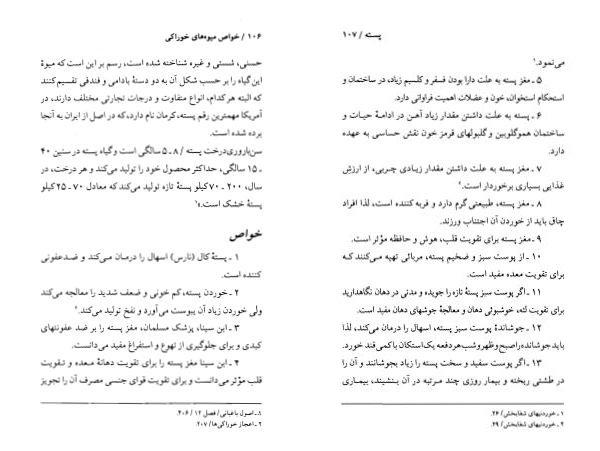 ۱۰۶ / خواص میوه‌های خوراکی
حسنی، شستی و غیره شناخته شده است، رسم بر این است که میوۀ
این‌گیاه را بر حسب شکل آن به دو دستۀ بادامی و فندقی تقسیم‌کنند
که البته هر کدام، انواع متفاوت و درجات تجارتی مختلف دارند، در
آمریکا مهمترین رقم پسته، کرمان نام دارد، که در اصل از ایران به آنجا
برده شده است.
سن‌باروری‌درخت پسته / ۸ ـ ۵ سالگی است وگیاه پسته در سنین ۴۰
ـ ۱۵ سالگی، حداکثر محصول خود را تولید می‌کند و هر درخت، در
سال، ۲۰۰ ـ ۷۰ کیلو پستۀ تازه تولید می‌کند که معادل ۷۰ ـ ۲۵ کیلو
پستۀ خشک است.۱»
خواص
۱ ـ پستۀ کال (نارس) اسهال را درمان می‌کند و ضدعفونی
کننده است.
۲ ـ خوردن پسته، کم خونی و ضعف شدید را معالجه می‌کند
ولی خوردن زیاد آن یبوست می‌آورد و نفخ تولید می‌کند.۲
۳ ـ ابن سینا، پزشک مسلمان، مغز پسته را بر ضد عفونتهای
کبدی و برای جلوگیری از تهوع و استفراغ مفید می‌دانست.
۴ ـ ابن سینا مغز پسته را برای تقویت دهانۀ معده و تقویت
قلب مؤثر می‌دانست و برای تقویت قوای جنسی مصرف آن را تجویز
۱ ـ اصول باغبانی/ فصل ۱۲ / ۴۰۶.
۲ ـ اعجاز خوراکی‌ها/ ۲۰۷.
پسته / ۱۰۷
می‌نمود.۱
۵ ـ مغز پسته به علت دارا بودن فسفر و کلسیم زیاد، در ساختمان و
استحکام استخوان، خون و عضلات اهمیت فراوانی دارد.
۶ ـ مغز پسته به علت داشتن مقدار زیاد آهن در ادامۀ حیات و
ساختمان هموگلوبین و گلبولهای قرمز خون نقش حساسی به عهده
دارد.
۷ ـ مغز پسته به علت داشتن مقدار زیادی چربی، از ارزش
غذایی بسیاری برخوردار است.۲
۸ ـ مغز پسته، طبیعتی گرم دارد و فربه کننده است، لذا افراد
چاق باید از خوردن آن اجتناب ورزند.
۹ ـ مغز پسته برای تقویت قلب، هوش و حافظه مؤثر است.
۱۰ ـ از پوست سبز و ضخیم پسته، مربائی تهیه می‌کنند که
برای تقویت معده مفید است.
۱۱ ـ اگر پوست سبز پستۀ تازه را جویده و مدتی در دهان نگاهدارید
برای تقویت لثه، خوشبوئی دهان و معالجۀ جوشهای دهان مفید است.
۱۲ ـ جوشاندۀ پوست سبز پسته، اسهال را درمان می‌کند، لذا
باید جوشانده را صبح و ظهر و شب هر دفعه یک استکان با کمی قند خورد.
۱۳ ـ اگر پوست سفید و سخت پسته را زیاد بجوشانند و آن را
در طشتی ریخته و بیمار روزی چند مرتبه در آن بنشیند، بیماری
۱ ـ خوردنیهای شفابخش/ ۲۶.
۲ ـ خوردنیهای شفابخش/ ۲۹.